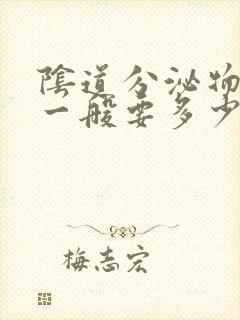 陰道分泌物
一般要多少
梅志宏